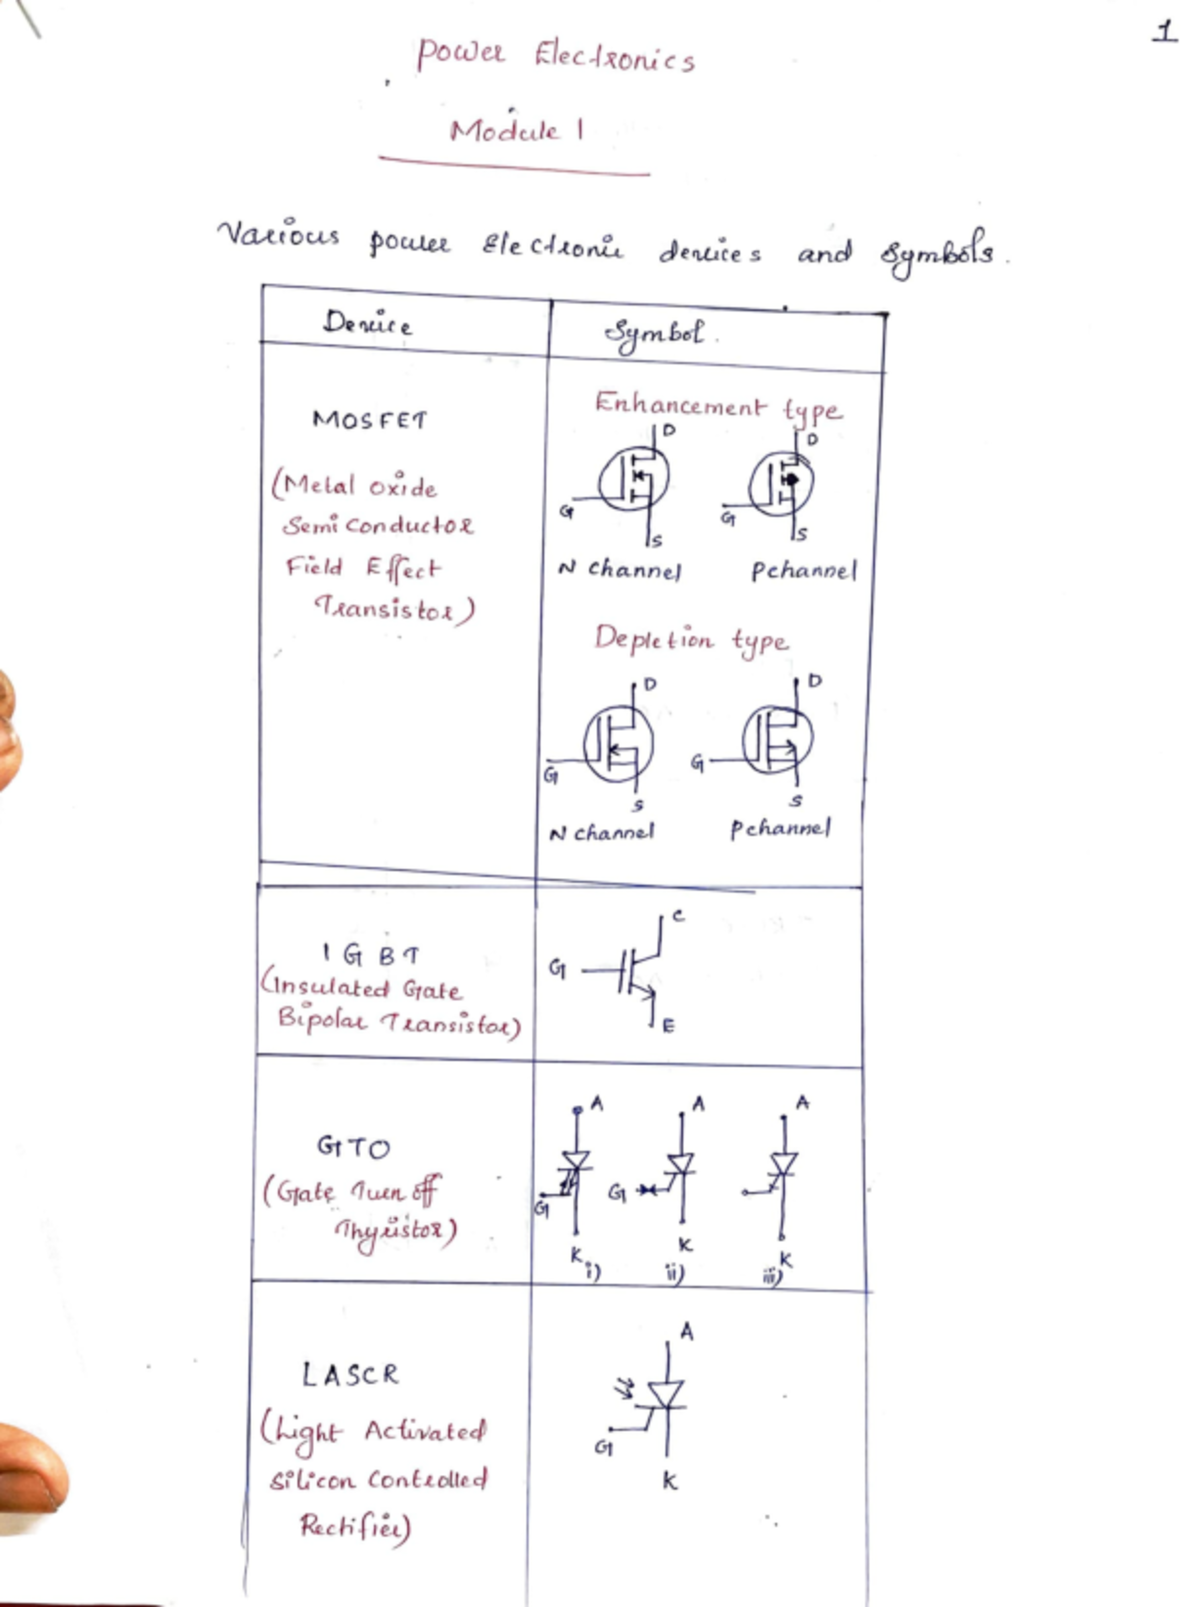 1
Power Electronics
Module 1
Various power Electronic devices and symbols.
Device
Symbol.
MOSFET
(Metal oxide
Semi conductor
Field Effect
Transistor)
Enhancement type
D
D
G
G
S
S
N channel
Pchannel
Depletion type
D
D
G
G
S
S
N channel
Pchannel
IGBT
(Insulated Gate
Bipolar Transistor)
C
G
E
GTO
(Gate Turn off
Thyristor)
A
A
A
G
G
K
K
K
i)
ii)
iii)
LASCR
(Light Activated
Silicon Controlled
Rectifier)
A
G
K